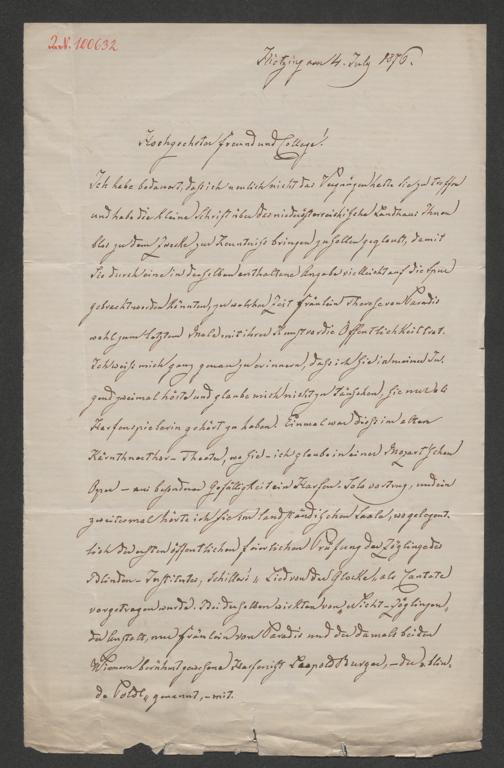 I.N. 100632
Hietzing am 4. July 1876.
Hochgeehrter Freund und College!
Ich habe bedauert, daß ich neulich nicht das Vergnügen hatte Sie zu treffen
und habe die kleine Schrift über das niederösterreichische Landhaus Ihnen
blos zu dem Zwecke zur Kenntniß bringen zu sollen geglaubt, damit
Sie durch eine in derselben enthaltene Angabe vielleicht auf die Spur
gebracht werden könnten, zu welcher Zeit Fräulein Therese von Paradis
wohl zum letzten Male mit ihrer Kunst vor die Öffentlichkeit trat.
Ich weiß mich ganz genau zu erinnern, daß ich Sie in meiner Ju-
gend zweimal hörte und glaube mich nicht zu täuschen, Sie nur als
Harfenspielerin gehört zu haben. Einmal war dieß im alten
Kärnthnerthor-Theater, wo Sie – ich glaube in einer Mozart'schen
Oper – aus besonderer Gefälligkeit ein Harfen-Solo vortrug, und ein
zweitesmal hörte ich sie im landständischen Saale, wo gelegent-
lich der ersten öffentlichen feierlichen Prüfung der Zöglinge des
Blinden-Institutes, Schillers „Lied von der Glocke" als Cantate
vorgetragen wurde. Bei derselben wirkten von „Nicht-Zöglingen"
der Anstalt, nur Fräulein von Paradis und der damals bei den
Wienern berühmt gewesene Harfenist Leopold Burger, – „der blin-
de Poldl" genannt, – mit.